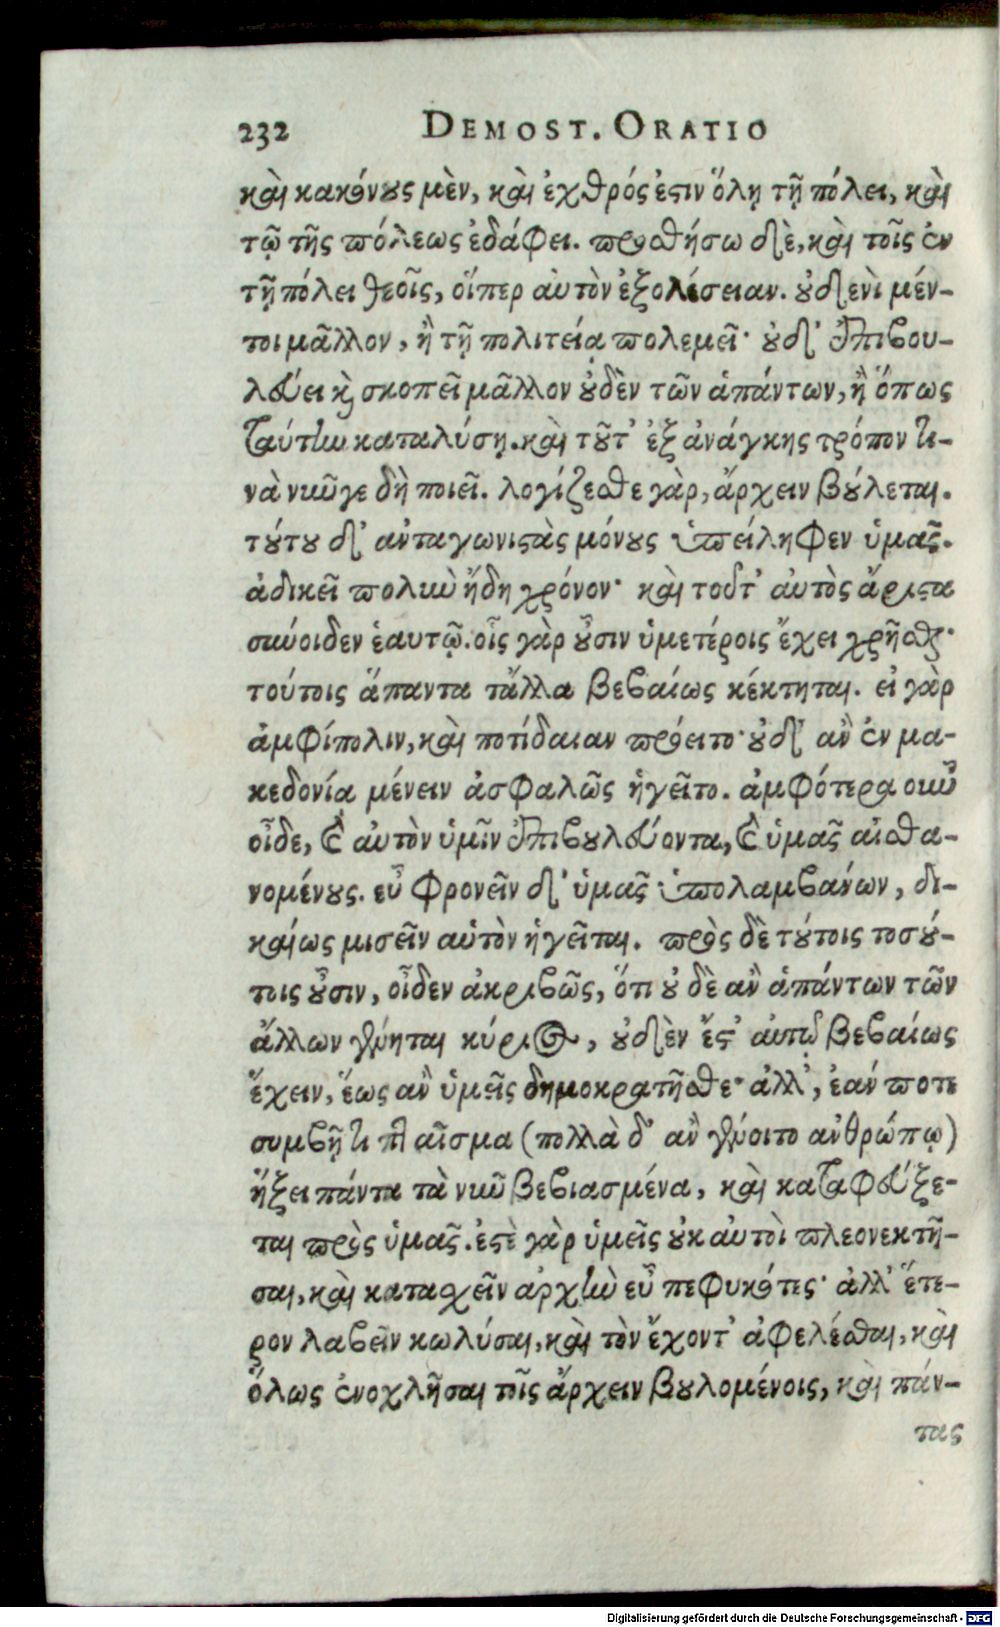 232 DEMOST. ORATIO
καὶ κακόνους μὲν, καὶ ἐχθρός ἐστιν ὅλῃ τῇ πόλει, καὶ
τῷ τῆς πόλεως ἐδάφει. προσθήσω δὲ, καὶ τοῖς ἐν
τῇ πόλει θεοῖς, οἵπερ αὐτὸν ἐξολέσειαν. οὐδενὶ μέν-
τοι μᾶλλον, ἢ τῇ πολιτείᾳ πολεμεῖ· οὐδ' ἐπιβου-
λεύει καὶ σκοπεῖ μᾶλλον οὐδὲν τῶν ἁπάντων, ἢ ὅπως
ταύτην καταλύσῃ. καὶ τοῦτ' ἐξ ἀνάγκης τρόπον τι-
νὰ νῦν γε δὴ ποιεῖ. λογίζεσθε γὰρ, ἄρχειν βούλεται.
τούτου δ' ἀνταγωνιστὰς μόνους ὑπείληφεν ὑμᾶς.
ἀδικεῖ πολὺν ἤδη χρόνον· καὶ τοῦτ' αὐτὸς ἄριστα
σύνοιδεν ἑαυτῷ. οἷς γὰρ οὖσιν ὑμετέροις ἔχει χρῆσθαι·
τούτοις ἅπαντα τἄλλα βεβαίως κέκτηται. εἰ γὰρ
ἀμφίπολιν, καὶ ποτίδαιαν πρόειτο· οὐδ' ἂν ἐν μα-
κεδονίᾳ μένειν ἀσφαλῶς ἡγεῖτο. ἀμφότερα οὖν
οἶδε, καὶ αὐτὸν ὑμῖν ἐπιβουλεύοντα, καὶ ὑμᾶς αἰσθα-
νομένους. εὖ φρονεῖν δ' ὑμᾶς ὑπολαμβάνων, δι-
καίως μισεῖν αὐτὸν ἡγεῖται. πρὸς δὲ τούτοις τοσού-
τοις οὖσιν, οἶδεν ἀκριβῶς, ὅτι οὐ δὲ ἂν ἁπάντων τῶν
ἄλλων γένηται κύριος, οὐδὲν ἔστ' αὐτῷ βεβαίως
ἔχειν, ἕως ἂν ὑμεῖς δημοκρατῆσθε· ἀλλ', ἐάν ποτε
συμβῇ τι πταῖσμα (πολλὰ δ' ἂν γένοιτο ἀνθρώπῳ)
ἥξει πάντα τὰ νῦν βεβιασμένα, καὶ καταφεύξε-
ται πρὸς ὑμᾶς. ἐστὲ γὰρ ὑμεῖς οὐκ αὐτοὶ πλεονεκτῆ-
σαι, καὶ κατασχεῖν ἀρχὴν εὖ πεφυκότες· ἀλλ' ἕτε-
ρον λαβεῖν κωλύσαι, καὶ τὸν ἔχοντ' ἀφελέσθαι, καὶ
ὅλως ἐνοχλῆσαι τοῖς ἄρχειν βουλομένοις, καὶ πάν-
τας
Digitalisierung gefördert durch die Deutsche Forschungsgemeinschaft - DFG